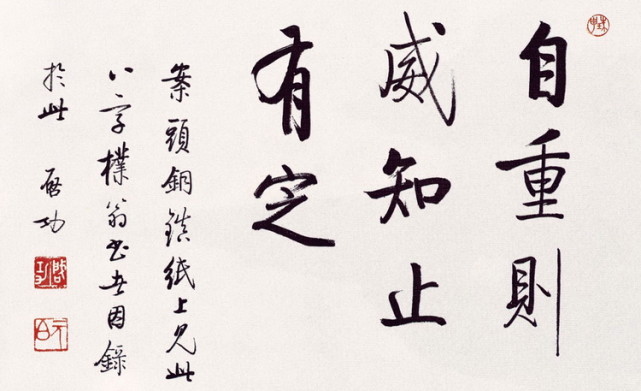 自重則
威知止
有定
案頭銅鎮紙上見此
八字樸翁書者因錄
於此 啟功